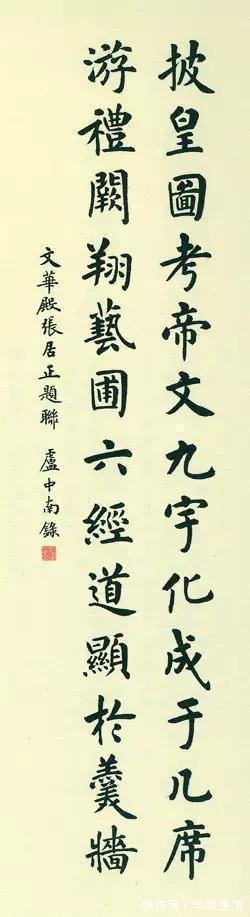 披皇圖考帝文九宇化成于几席
游禮闕翔藝圃六經道顯於羹牆
文華殿張居正題聯 盧中南錄
快传号/半双生活